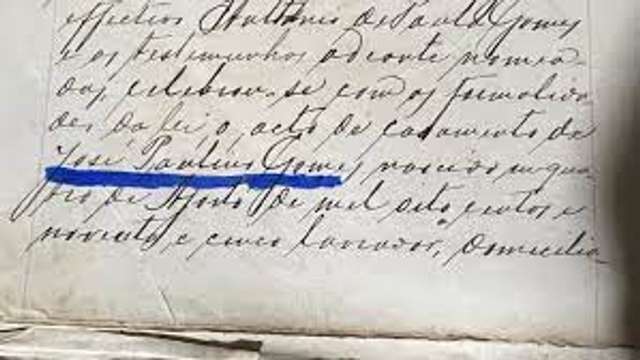 effectivo Antonio de Paula Gomes
e as testemunhas adeante nomea-
das, celebrou-se com as formalida
des da lei o acto de casamento de
José Paulino Gomes, nascido in qua
tro de Agosto de mil sete centos e
noventa e cinco lavrador, domicilia